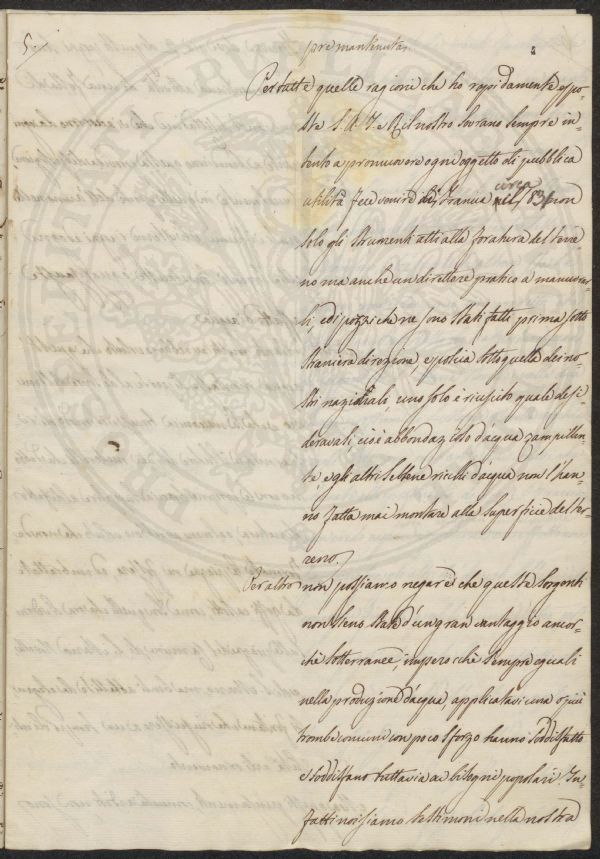 5.
pre mantenuta.
Per tutte quelle ragioni che ho rapidamente espo-
ste S. A. I. e R. il nostro Sovrano sempre in-
tento a promuovere ogni oggetto di pubblica
utilità fece venire di Francia circa nel 1831 non
solo gli strumenti atti alla foratura del terre-
no ma anche un direttore pratico a manovrar-
li, e di pozzi che ne sono stati fatti prima sotto
straniera direzione, e poscia sotto quella dei no-
stri nazionali, uno solo è riuscito quale desi-
deravasi, cioè abbondazioso d'acqua zampillan-
te, e gli altri sebbene ricchi d'acqua non l'han-
no fatta mai montare alla superfice del ter-
reno.
Per altro non possiamo negare che queste sorgenti
non sieno state d'un gran vantaggio ancor-
chè sotterranee, imperocchè sempre eguali
nella produzione d'acqua, applicatavi una o più
trombe comuni con poco sforzo hanno soddisfatto
e soddisfano tuttavia ai bisogni popolari. In-
fatti noi siamo testimoni nella nostra